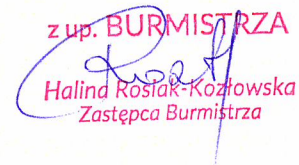 z up. BURMISTRZA
Halina Rosiak-Kozłowska
Zastępca Burmistrza